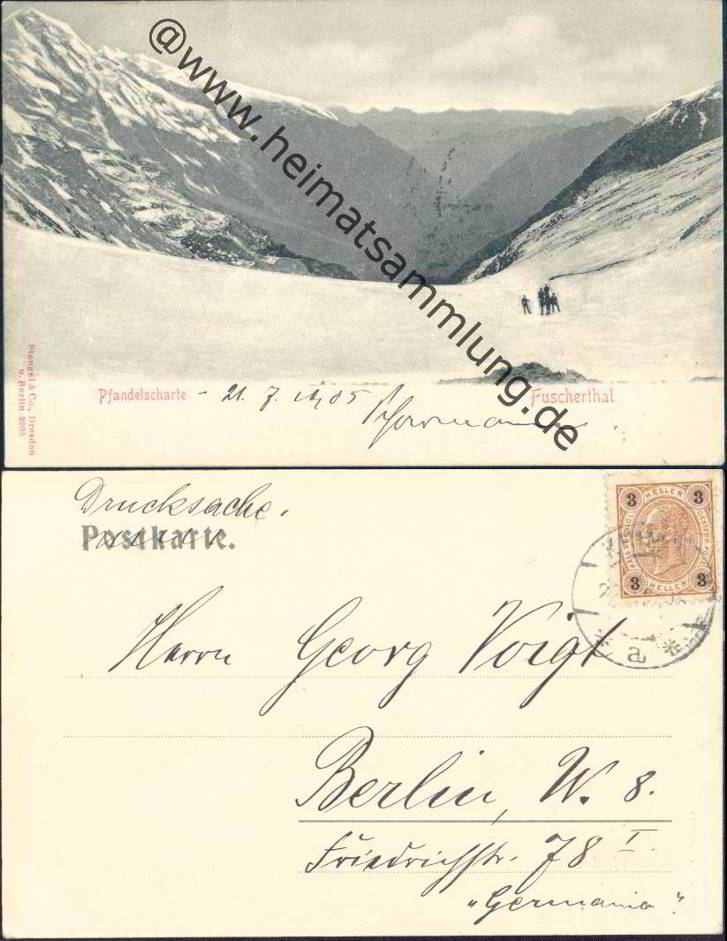 @www.heimatsammlung.de
Stengel & Co., Dresden
u. Berlin 2998
Pfandelscharte - 21. 7. 1905
Fuscherthal
Drucksache.
Postkarte.
3 HELLER 3
3 HELLER 3
a
Herrn Georg Voigt
Berlin, W. 8.
Friedrichstr. 78 I.
"Germania".